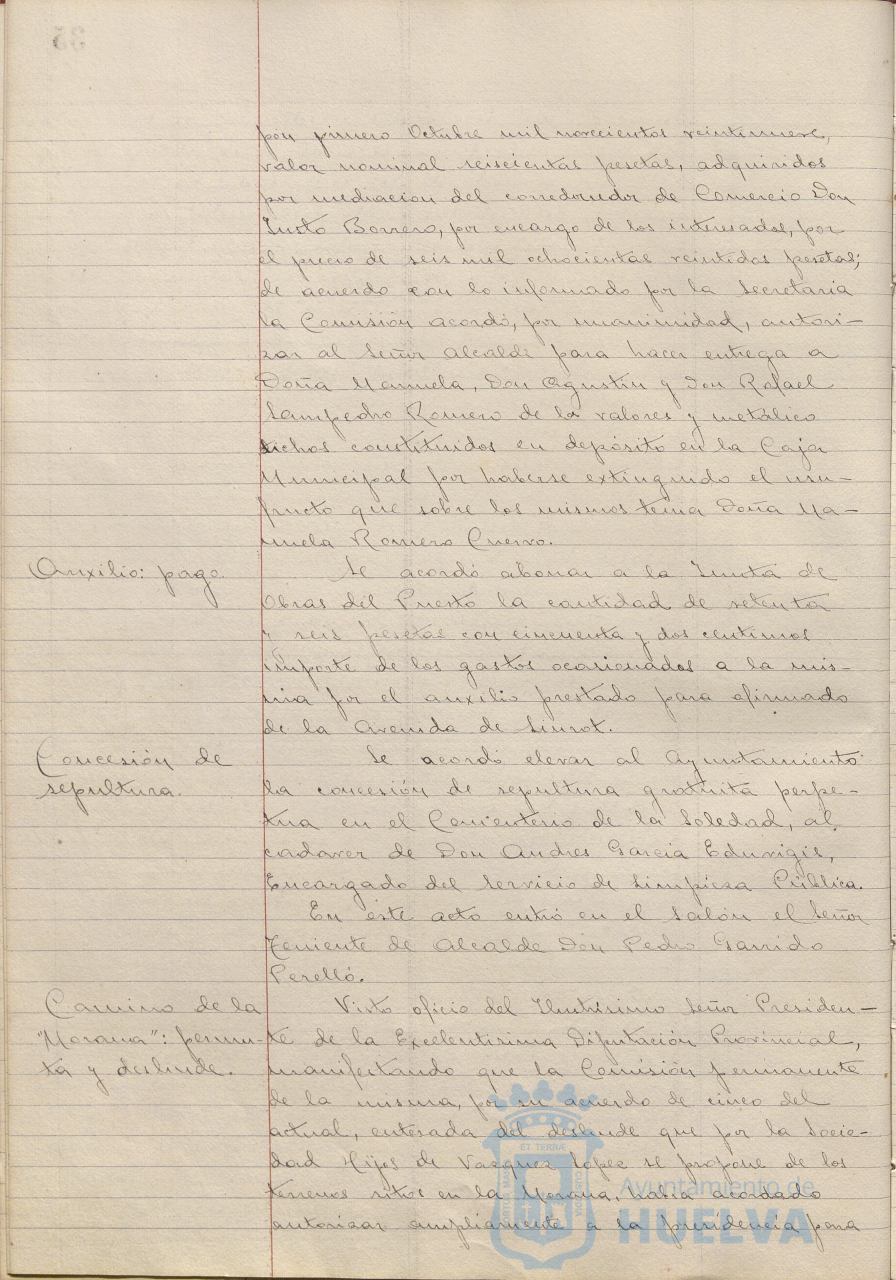 por primero Octubre mil novecientos veintinueve,
valor nominal seiscientas pesetas, adquiridos
por mediacion del corredor de Comercio Don
Justo Borrero, por encargo de los interesados, por
el precio de seis mil ochocientas veintidos pesetas;
de acuerdo con lo informado por la Secretaria
la Comisión acordó, por unanimidad, autori-
zar al Señor Alcalde para hacer entrega a
Doña Manuela, Don Agustin y Don Rafael
Sampedro Romero de los valores y metálico
dichos constituidos en depósito en la Caja
Municipal por haberse extinguido el usu-
fructo que sobre los mismos tenia Doña Ma-
nuela Romero Cuervo.
Auxilio: pago.
Se acordó abonar a la Junta de
Obras del Puerto la cantidad de setenta
y seis pesetas con cincuenta y dos centimos
importe de los gastos ocasionados a la mis-
ma por el auxilio prestado para afirmado
de la Avenida de Siurot.
Concesión de
sepultura.
Se acordó elevar al Ayuntamiento
la concesión de sepultura gratuita perpe-
tua en el Cementerio de la Soledad, al
cadaver de Don Andres Garcia Eduvigis,
Encargado del Servicio de Limpieza Pública.
En este acto entró en el salón el Señor
Teniente de Alcalde Don Pedro Garrido
Perelló.
Camino de la
"Morana": permu-
ta y deslinde.
Visto oficio del Ilustrisimo Señor Presiden-
te de la Excelentisima Diputación Provincial,
manifestando que la Comisión permanente
de la misma, por su acuerdo de cinco del
actual, enterada del deslinde que por la Socie-
dad Hijos de Vazquez Lopez se propone de los
terrenos sitos en la Morana, habia acordado
autorizar ampliamente a la presidencia para
Ayuntamiento de
HUELVA